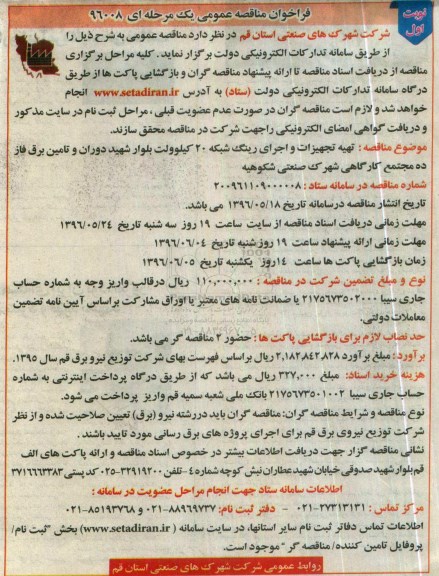 نوبت اول
فراخوان مناقصه عمومی یک مرحله ای ۹۶۰۰۸
شرکت شهرک های صنعتی استان قم در نظر دارد مناقصه عمومی به شرح ذیل را
از طریق سامانه تدارکات الکترونیکی دولت برگزار نماید. کلیه مراحل برگزاری
مناقصه از دریافت اسناد مناقصه تا ارائه پیشنهاد مناقصه گران و بازگشایی پاکت ها از طریق
درگاه سامانه تدارکات الکترونیکی دولت (ستاد) به آدرس www.setadiran.ir انجام
خواهد شد و لازم است مناقصه گران در صورت عدم عضویت قبلی، مراحل ثبت نام در سایت مذکور
و دریافت گواهی امضای الکترونیکی راجهت شرکت در مناقصه محقق سازند.
موضوع مناقصه: تهیه تجهیزات و اجرای رینگ شبکه ۲۰ کیلوولت بلوار شهید دوران و تامین برق فاز
ده مجتمع کارگاهی شهرک صنعتی شکوهیه
شماره مناقصه در سامانه ستاد: ۲۰۰۹۶۱۱۰۹۰۰۰۰۰۸
تاریخ انتشار مناقصه درسامانه تاریخ ۱۳۹۶/۰۵/۱۸ می باشد.
مهلت زمانی دریافت اسناد مناقصه از سایت ساعت ۱۹ روز سه شنبه تاریخ ۱۳۹۶/۰۵/۲۴
مهلت زمانی ارائه پیشنهاد ساعت ۱۹ روز شنبه تاریخ ۱۳۹۶/۰۶/۰۴
زمان بازگشایی پاکت ها ساعت ۱۴روز یکشنبه تاریخ ۱۳۹۶/۰۶/۰۵
نوع و مبلغ تضمین شرکت در مناقصه: ۱۱۰,۰۰۰,۰۰۰ ریال درقالب واریز وجه به شماره حساب
جاری سیبا ۲۱۷۵۶۷۳۵۰۲۰۰۰ یا ضمانت نامه های معتبر یا اوراق مشارکت براساس آیین نامه تضمین
معاملات دولتی.
حد نصاب لازم برای بازگشایی پاکت ها: حضور ۲ مناقصه گر می باشد.
برآورد: مبلغ برآورد ۲,۱۸۲,۸۴۲,۸۲۸ ریال براساس فهرست بهای شرکت توزیع نیرو برق قم سال ۱۳۹۵.
هزینه خرید اسناد: مبلغ ۳۲۷,۰۰۰ ریال می باشد که از طریق درگاه پرداخت اینترنتی به شماره
حساب جاری سیبا ۲۱۷۵۶۷۳۵۰۱۰۰۲ بانک ملی شعبه سمیه قم واریز پرداخت می شود.
نوع مناقصه و شرایط مناقصه گران: مناقصه گران باید دررشته نیرو (برق) تعیین صلاحیت شده و از نظر
شرکت توزیع نیروی برق قم برای اجرای پروژه های برق رسانی مورد تایید باشند.
نشانی مناقصه گزار جهت دریافت اطلاعات بیشتر در خصوص اسناد مناقصه و ارائه پاکت های الف
قم بلوار شهید صدوقی خیابان شهید عطاران نبش کوچه شماره ۴-تلفن ۳۲۹۱۹۲۰۰-۰۲۵ کد پستی ۳۷۱۶۶۶۳۳۸۳
اطلاعات سامانه ستاد جهت انجام مراحل عضویت در سامانه:
مرکز تماس: ۲۷۳۱۳۱۳۱-۰۲۱ - دفتر ثبت نام: ۸۸۹۶۹۷۳۷-۰۲۱ و ۸۵۱۹۳۷۶۸-۰۲۱
اطلاعات تماس دفاتر ثبت نام سایر استانها، در سایت سامانه (www.setadiran.ir) بخش "ثبت نام/
پروفایل تامین کننده/ مناقصه گر" موجود است.
روابط عمومی شرکت شهرک های صنعتی استان قم